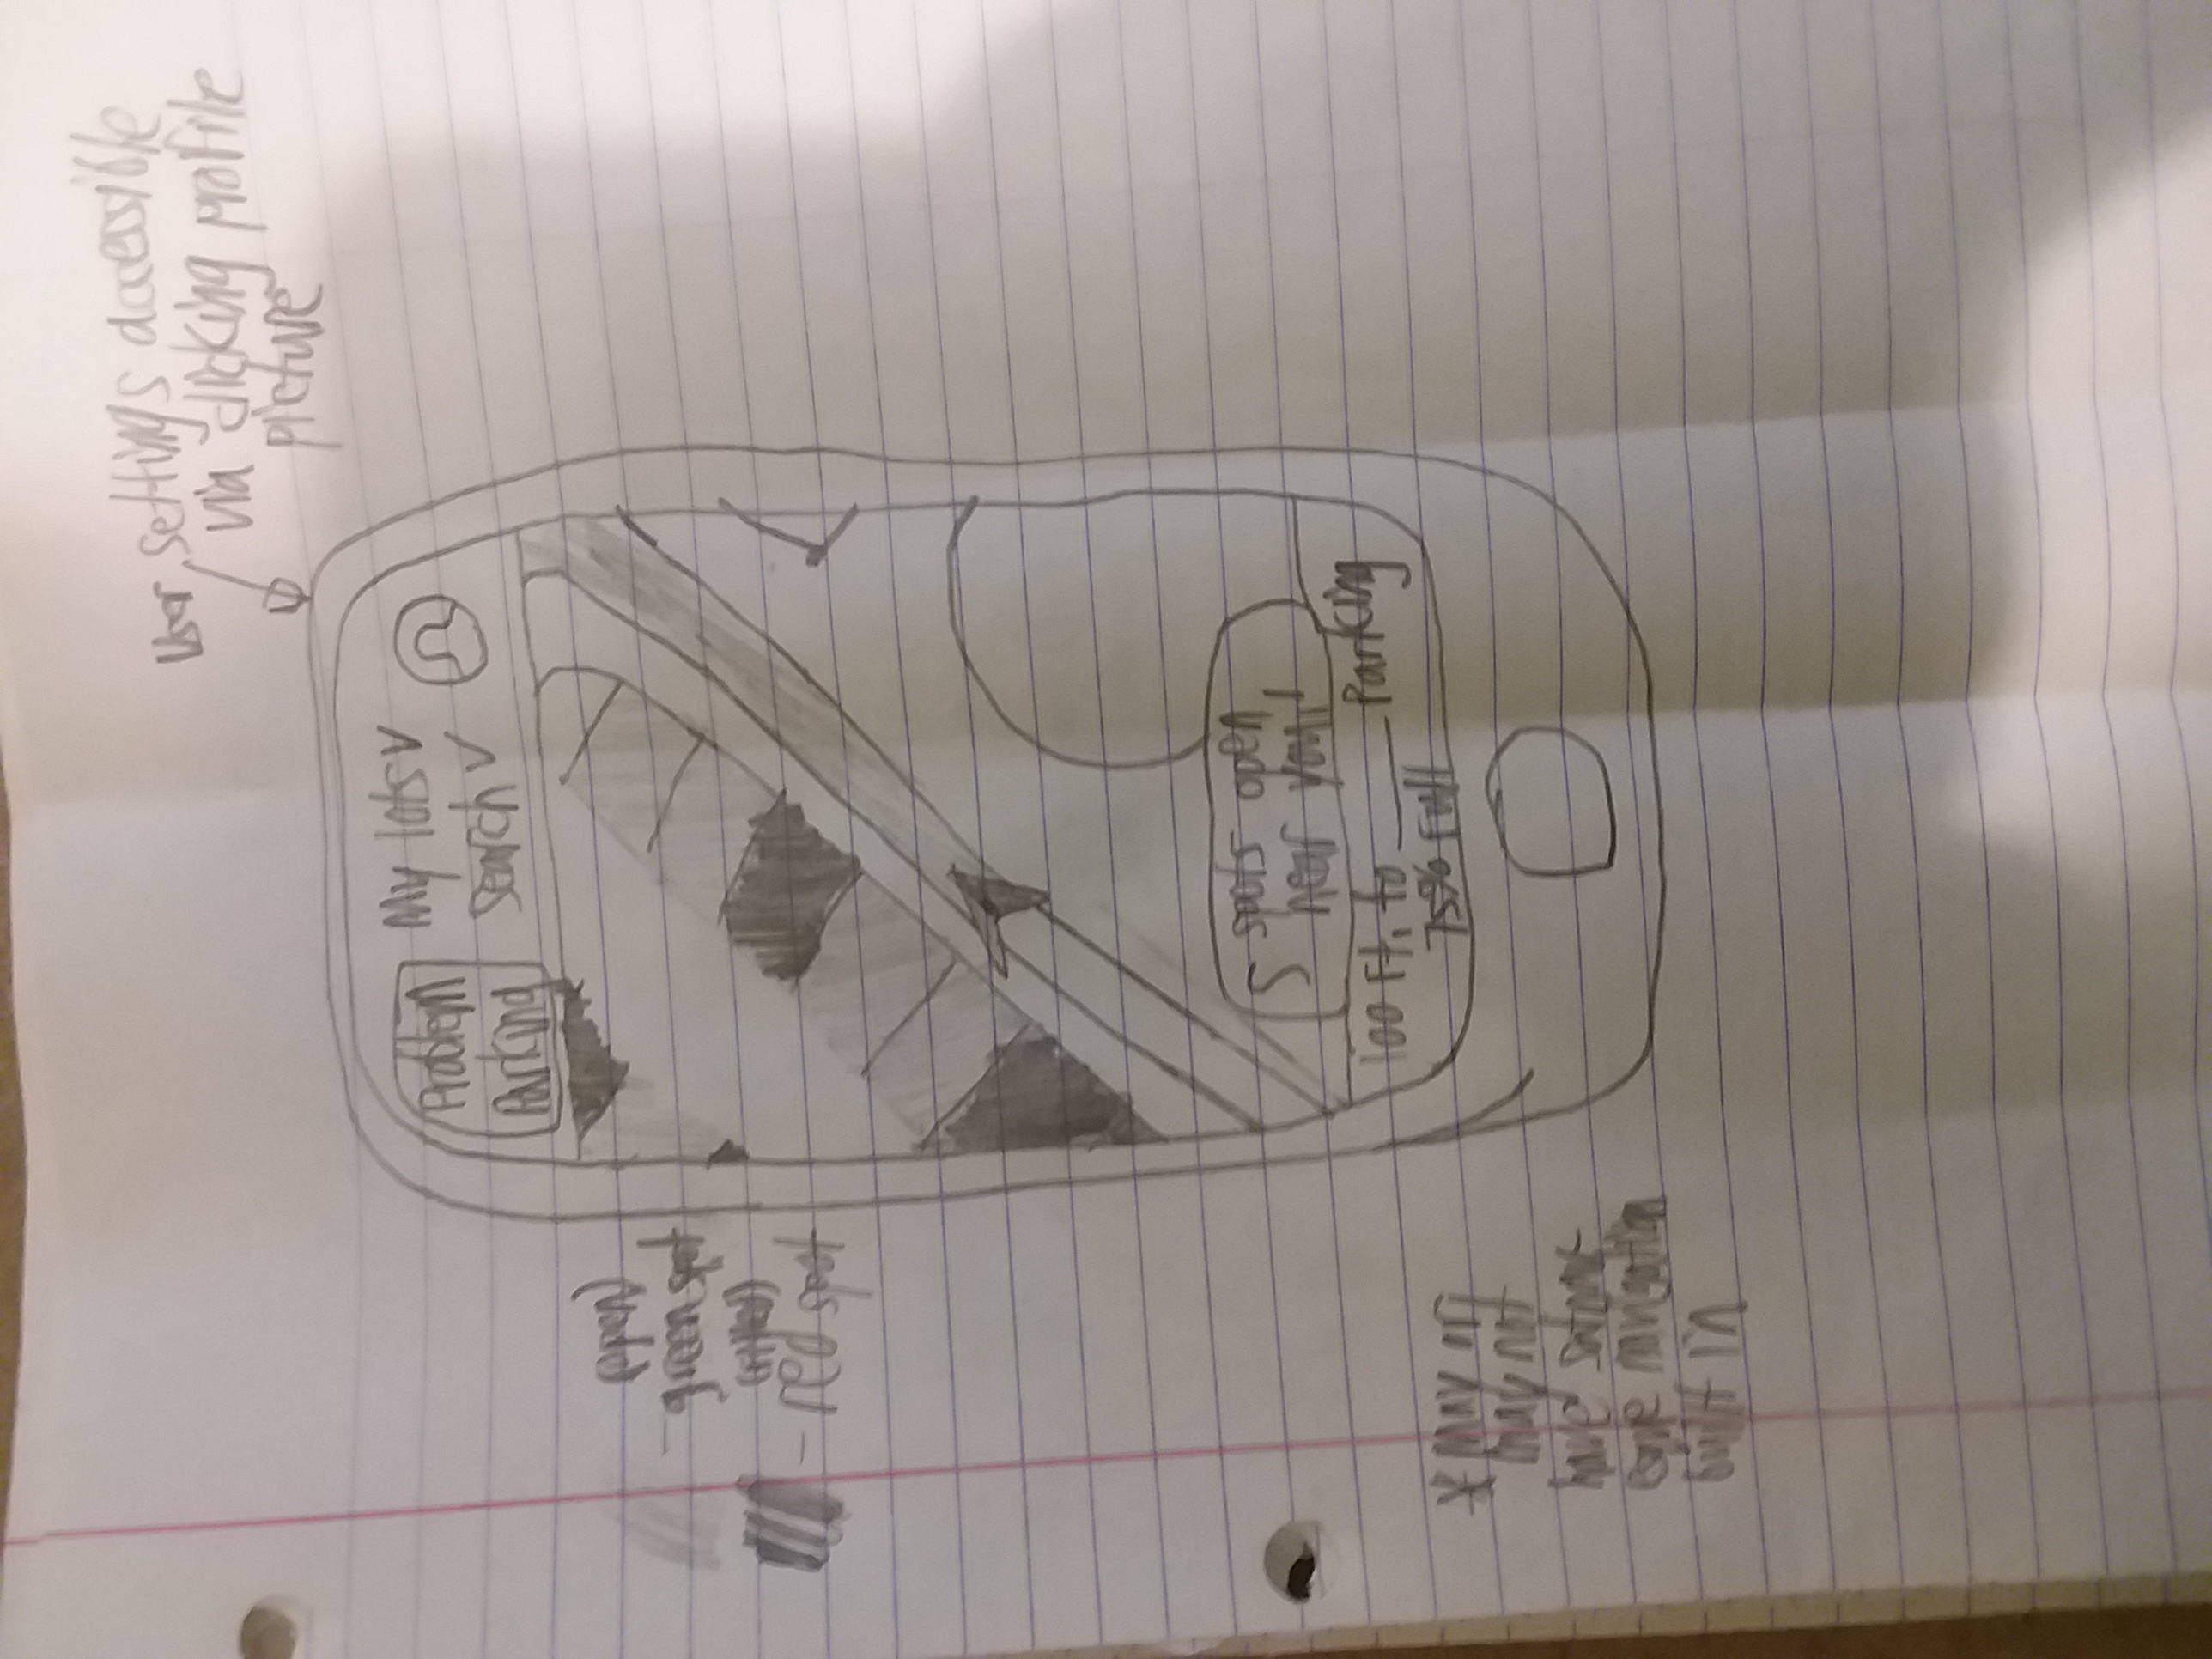 User settings accessible
via clicking profile
picture
Problem
Parking
My lots v
search v
(open)
- green spot
- red spot
5 spots open
near you!
100 Ft. to ______ Parking
75% Full
* May or
may not
have
navigation
built in